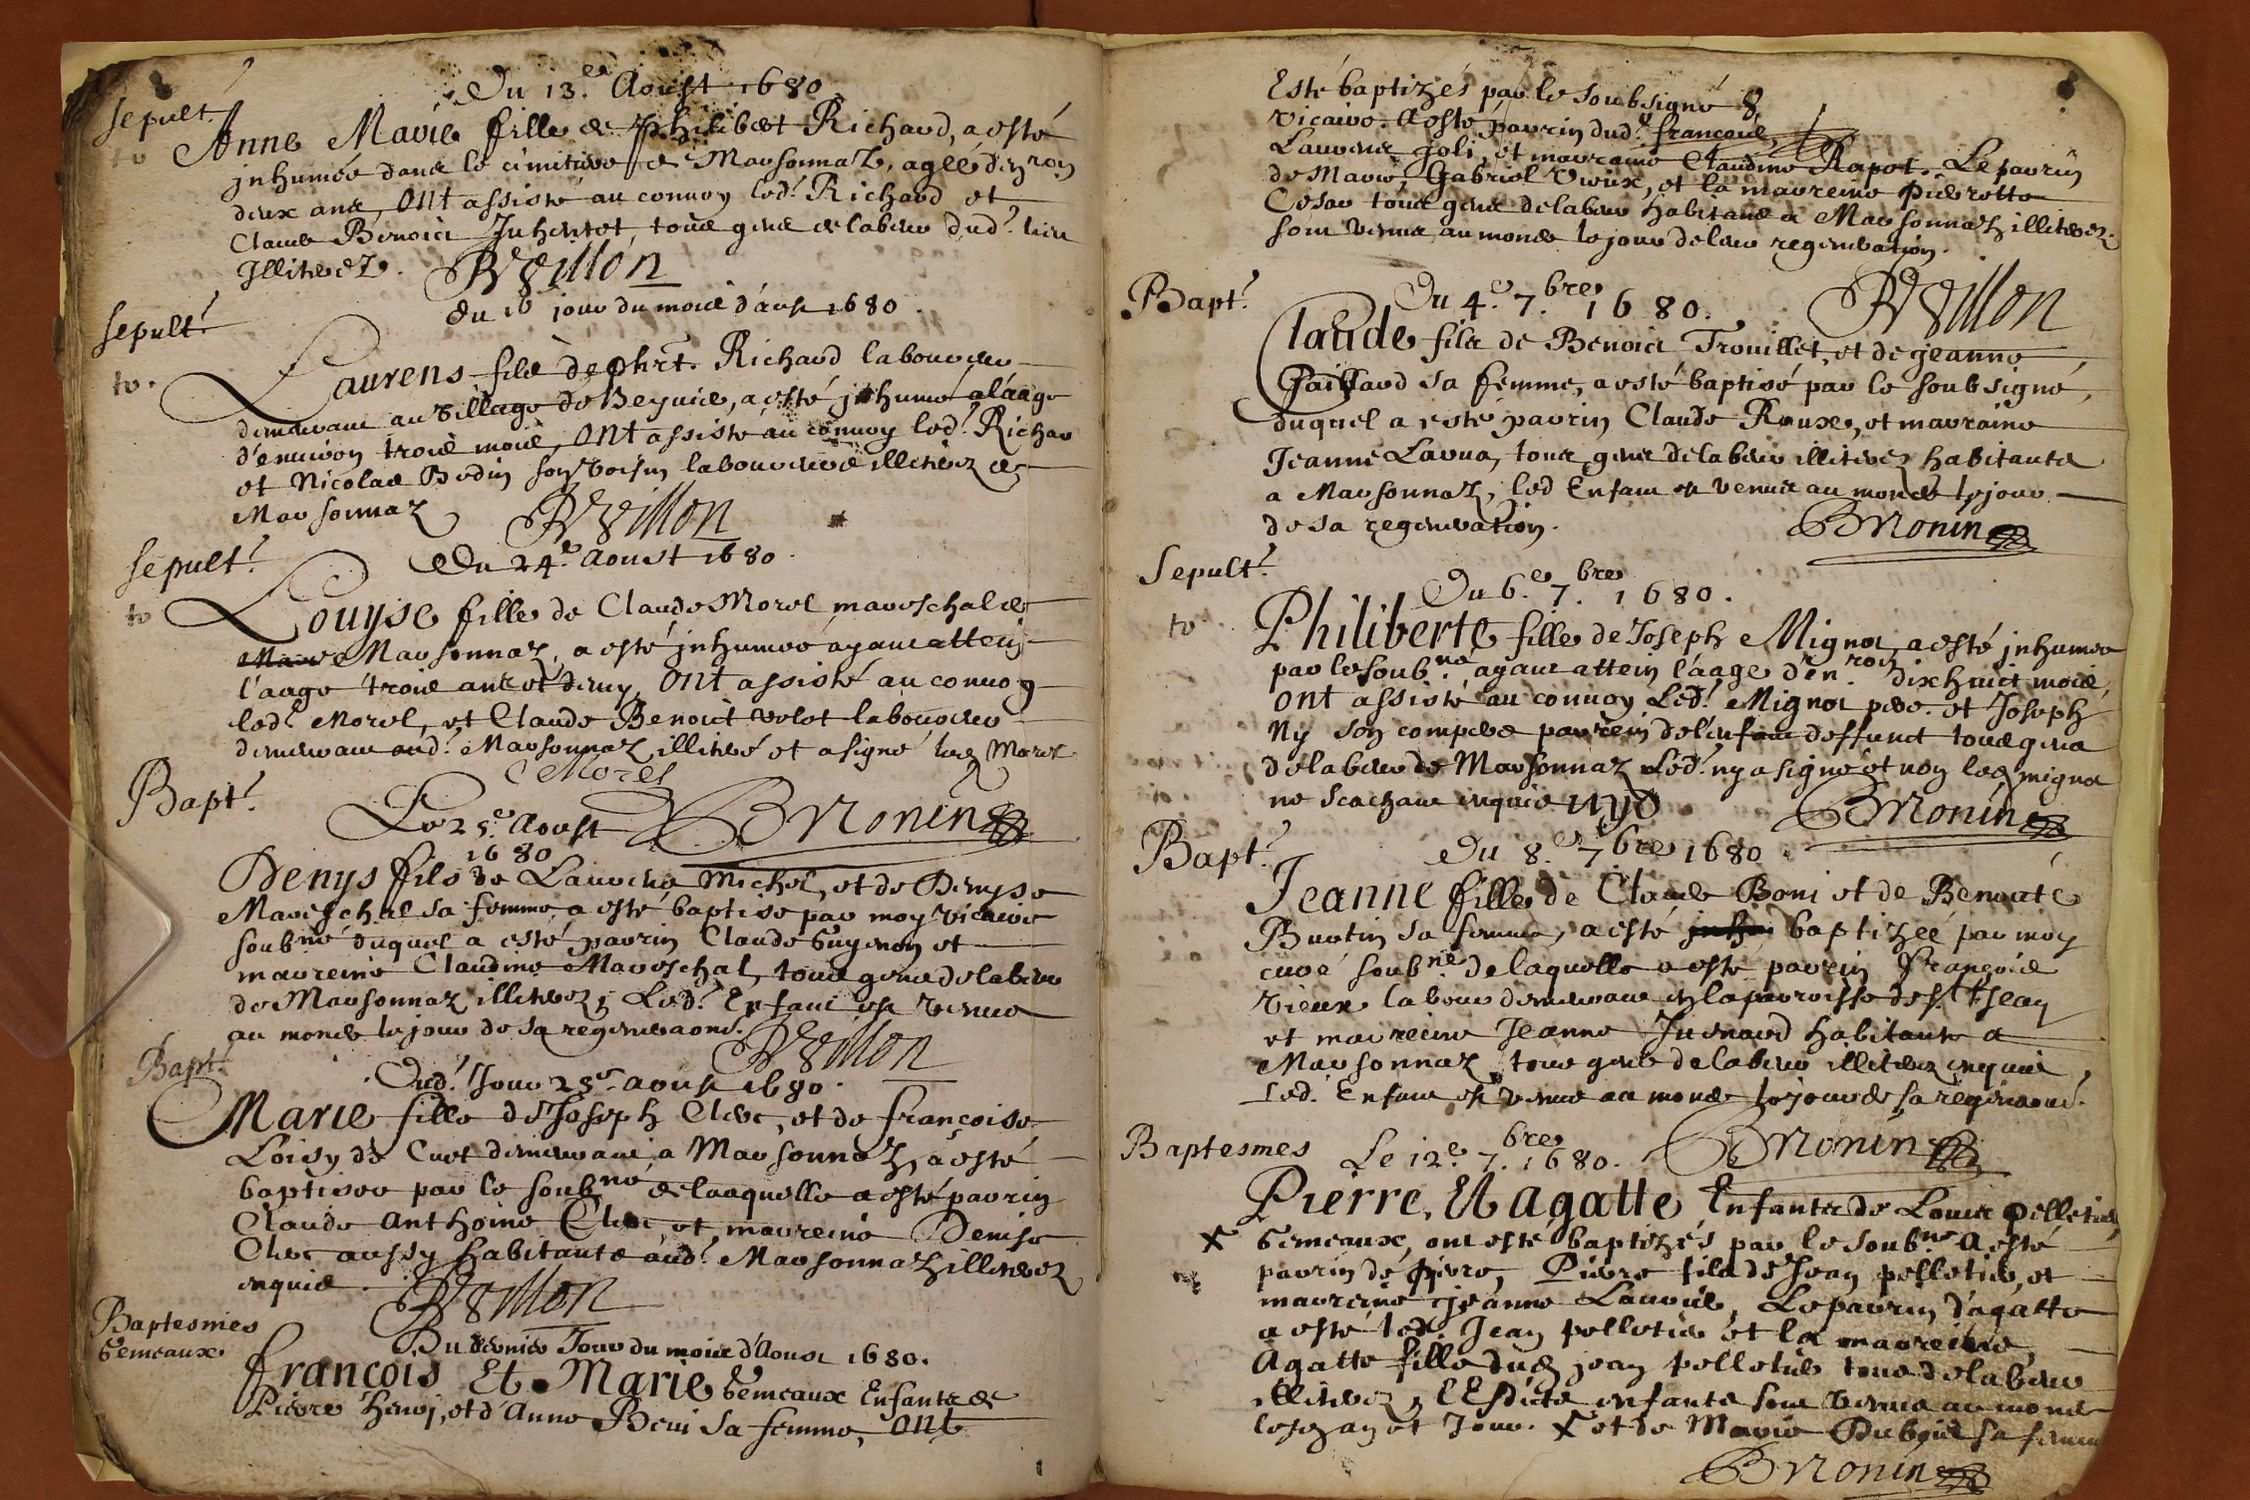 Du 13.e Aoust 1680
sepult.
Anne Marie fille de Philibert Richard, a esté
inhumée dans le cimitiere de Marsonnaz, agée d'en.ron
deux ans, ont assisté au convoy led.t Richard et
Claude Benoict Juhentet, tous gens de labeur dud.t lieu
Illiterez.
du 16 jour du mois d'aust 1680
sepult.
to.
Laurens fils de phrt. Richard laboureur
demeurant au village de Beyvie, a esté inhumé a l'aage
d'environ trois mois, ont assisté au convoy led.t Richar
et Nicolas Bodin son voisin laboureurs illiterez de
Marsonnaz
Du 24.e Aoust 1680
sepult.
to
Louyse fille de Claude Morel mareschal de
Marsonnaz, a esté inhumée ayant attein
l'aage trois ans et demy, ont assisté au convoy
led.t Morel, et Claude Benoict Volot laboureur
demeurant aud.t Marsonnaz illiteré et a signé led Morel
Morel
Bapt.
Le 25.e Aoust
1680
BMonin
Denys fils de Laurens Michel, et de Denyse
Mareschal sa femme a esté baptisé par moy vicaire
soub.né duquel a esté parrin Claude Guyenon et
marreine Claudine Mareschal, tous gens de labeur
de Marsonnaz illiterez, Led.t Enfant est venue
au monde le jour de sa regeneraon.
Bapt.
Dud.t Jour 25.e aoust 1680.
Marie fille de Joseph Clerc, et de françoise
Loisy de Cuet demeurant a Marsonnaz, a esté
baptisee par le soub.né de laquelle a esté parrin
Claude Anthoine Clerc et marreine Denise
Clerc aussy habitants aud.t Marsonnaz illiterez
enquis.
Baptesmes
Gemeaux
Du dernier Jour du mois d'Aoust 1680.
françois Et Marie Gemeaux Enfants de
Pierre henry, et d'Anne Beni sa femme, ont
Esté baptizés par le soubsigné
vicaire. a esté parrin dud.t françois,
Laurens Joli, et marraine Claudine Rapet. Le parrin
de Marie, Gabriel Vieux, et la marreine Pierrette
Cesar tous gens de labeur habitans a Marsonnaz illiterez.
sont venus au monde le jour de leur regeneration.
Bapt.
Du 4.e 7.bre 1680.
Claude fils de Benoict Trouillet, et de jeanne
Gaillard sa femme, a esté baptisé par le soubsigné,
duquel a esté parrin Claude Roux, et marraine
Jeanne Lavua, tous gens de labeur illiterez habitants
a Marsonnaz, led Enfant est venu au monde le jour
de sa regeneration.
BMonin
Sepult.
Du 6.e 7.bre 1680.
to
Philiberte fille de Joseph Mignot, a esté inhumee
par le soub.né ayant attein l'aage d'en.ron dixhuict mois,
ont assisté au convoy Led.t Mignot pere. et Joseph
Ny son compere parrein de l'enfant deffunct tous gens
de labeur de Marsonnaz Led.t ny a signé et non led mignot
ne scachant enquis nyd
BMonin
Bapt.
Du 8.e 7.bre 1680
Jeanne fille de Claude Boni et de Benoite
Burtin sa femme, a esté baptizée par moy
curé soub.né de laquelle a esté parrin François
Vieux labour demeurant en la parroisse de S.t Jean
et marreine Jeanne Juenard habitante a
Marsonnaz tous gens de labeur illiterez enquis,
Led. Enfant est venue au monde le jour de sa régéneraon.
BMonin
Baptesmes
Le 12.e 7.bre 1680.
Pierre, Et Agatte Enfants de Louis Pelletier
X Gemeaux, ont esté baptizés par le soub.né a esté
parrin de Pierre, Pierre fils de Jean pelletier, et
marreine jeanne Laurus, Le parrin d'agatte
a esté led. Jean pelletier et la marreine
Agatte fille dud jean pelletier tous de labeur
illiterez, lEsdicts enfants sont venus au monde
lesd an et Jour. X et de Marie Dubois sa femme
BMonin